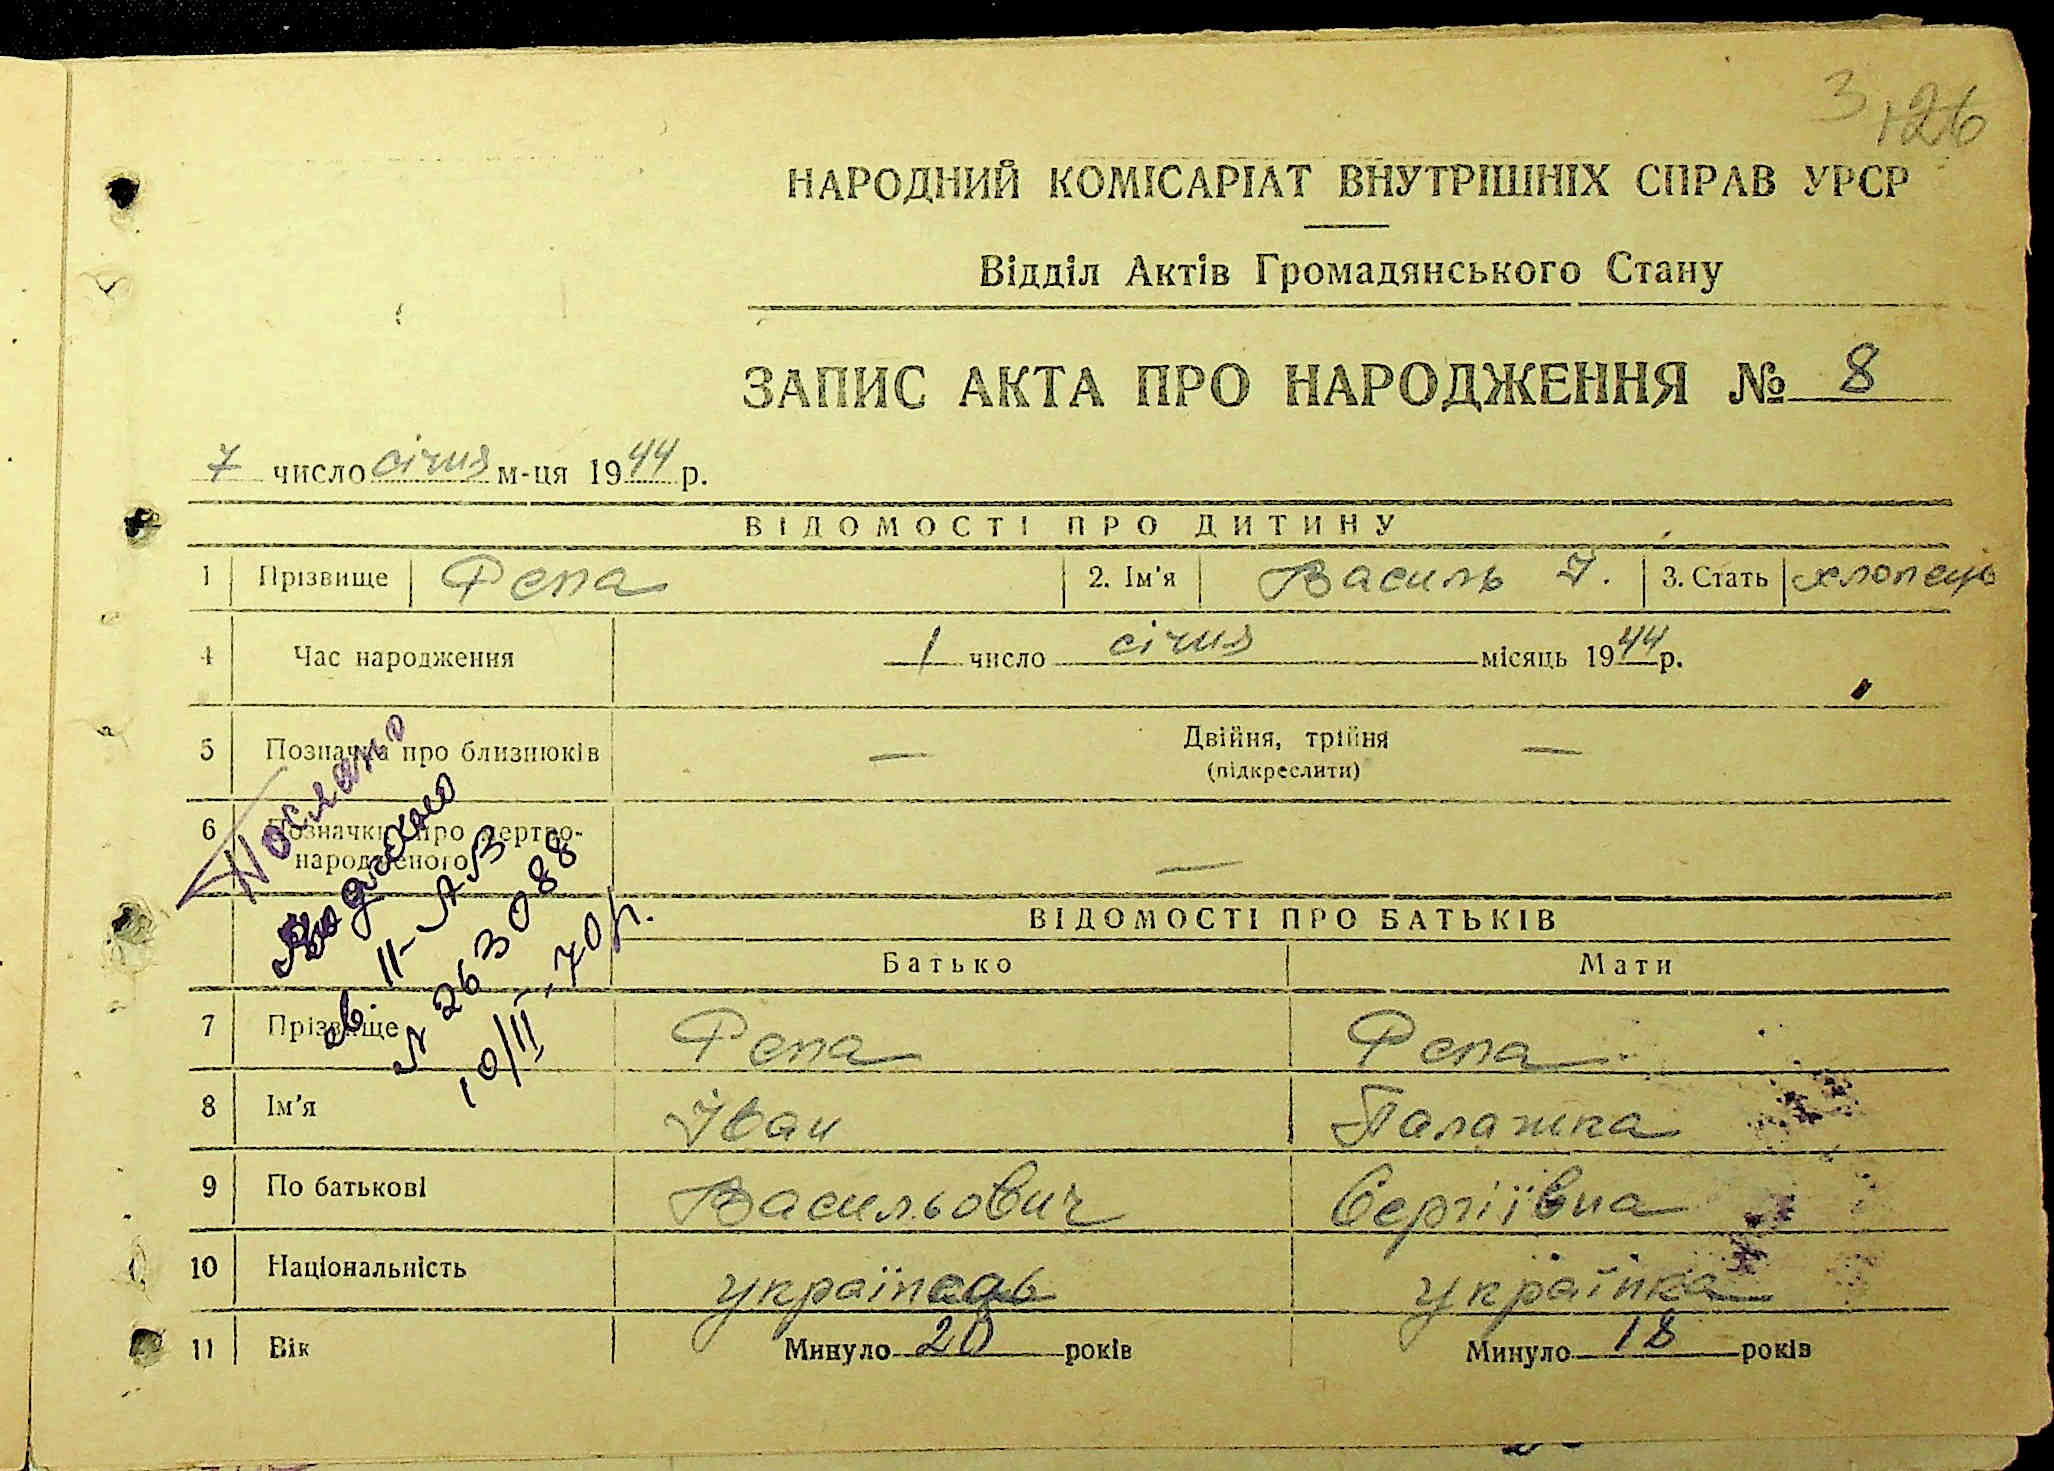 3 126
НАРОДНИЙ КОМІСАРІАТ ВНУТРІШНІХ СПРАВ УРСР
Відділ Актів Громадянського Стану
ЗАПИС АКТА ПРО НАРОДЖЕННЯ № 8
7 число січня м-ця 1944 р.
ВІДОМОСТІ ПРО ДИТИНУ
1 Прізвище Фепа 2. Ім'я Василь І. 3. Стать хлопець
4 Час народження 1 число січня місяць 1944 р.
5 Позначка про близнюків — Двійня, трійня —
(підкреслити)
6 Позначки про мертво-
народженого —
Послано
св. II-АБ
N 263088
10/II-70 р.
ВІДОМОСТІ ПРО БАТЬКІВ
Батько Мати
7 Прізвище Фепа Фепа
8 Ім'я Іван Палажка
9 По батькові Васильович Сергіївна
10 Національність українець українка
11 Вік Минуло 20 років Минуло 18 років